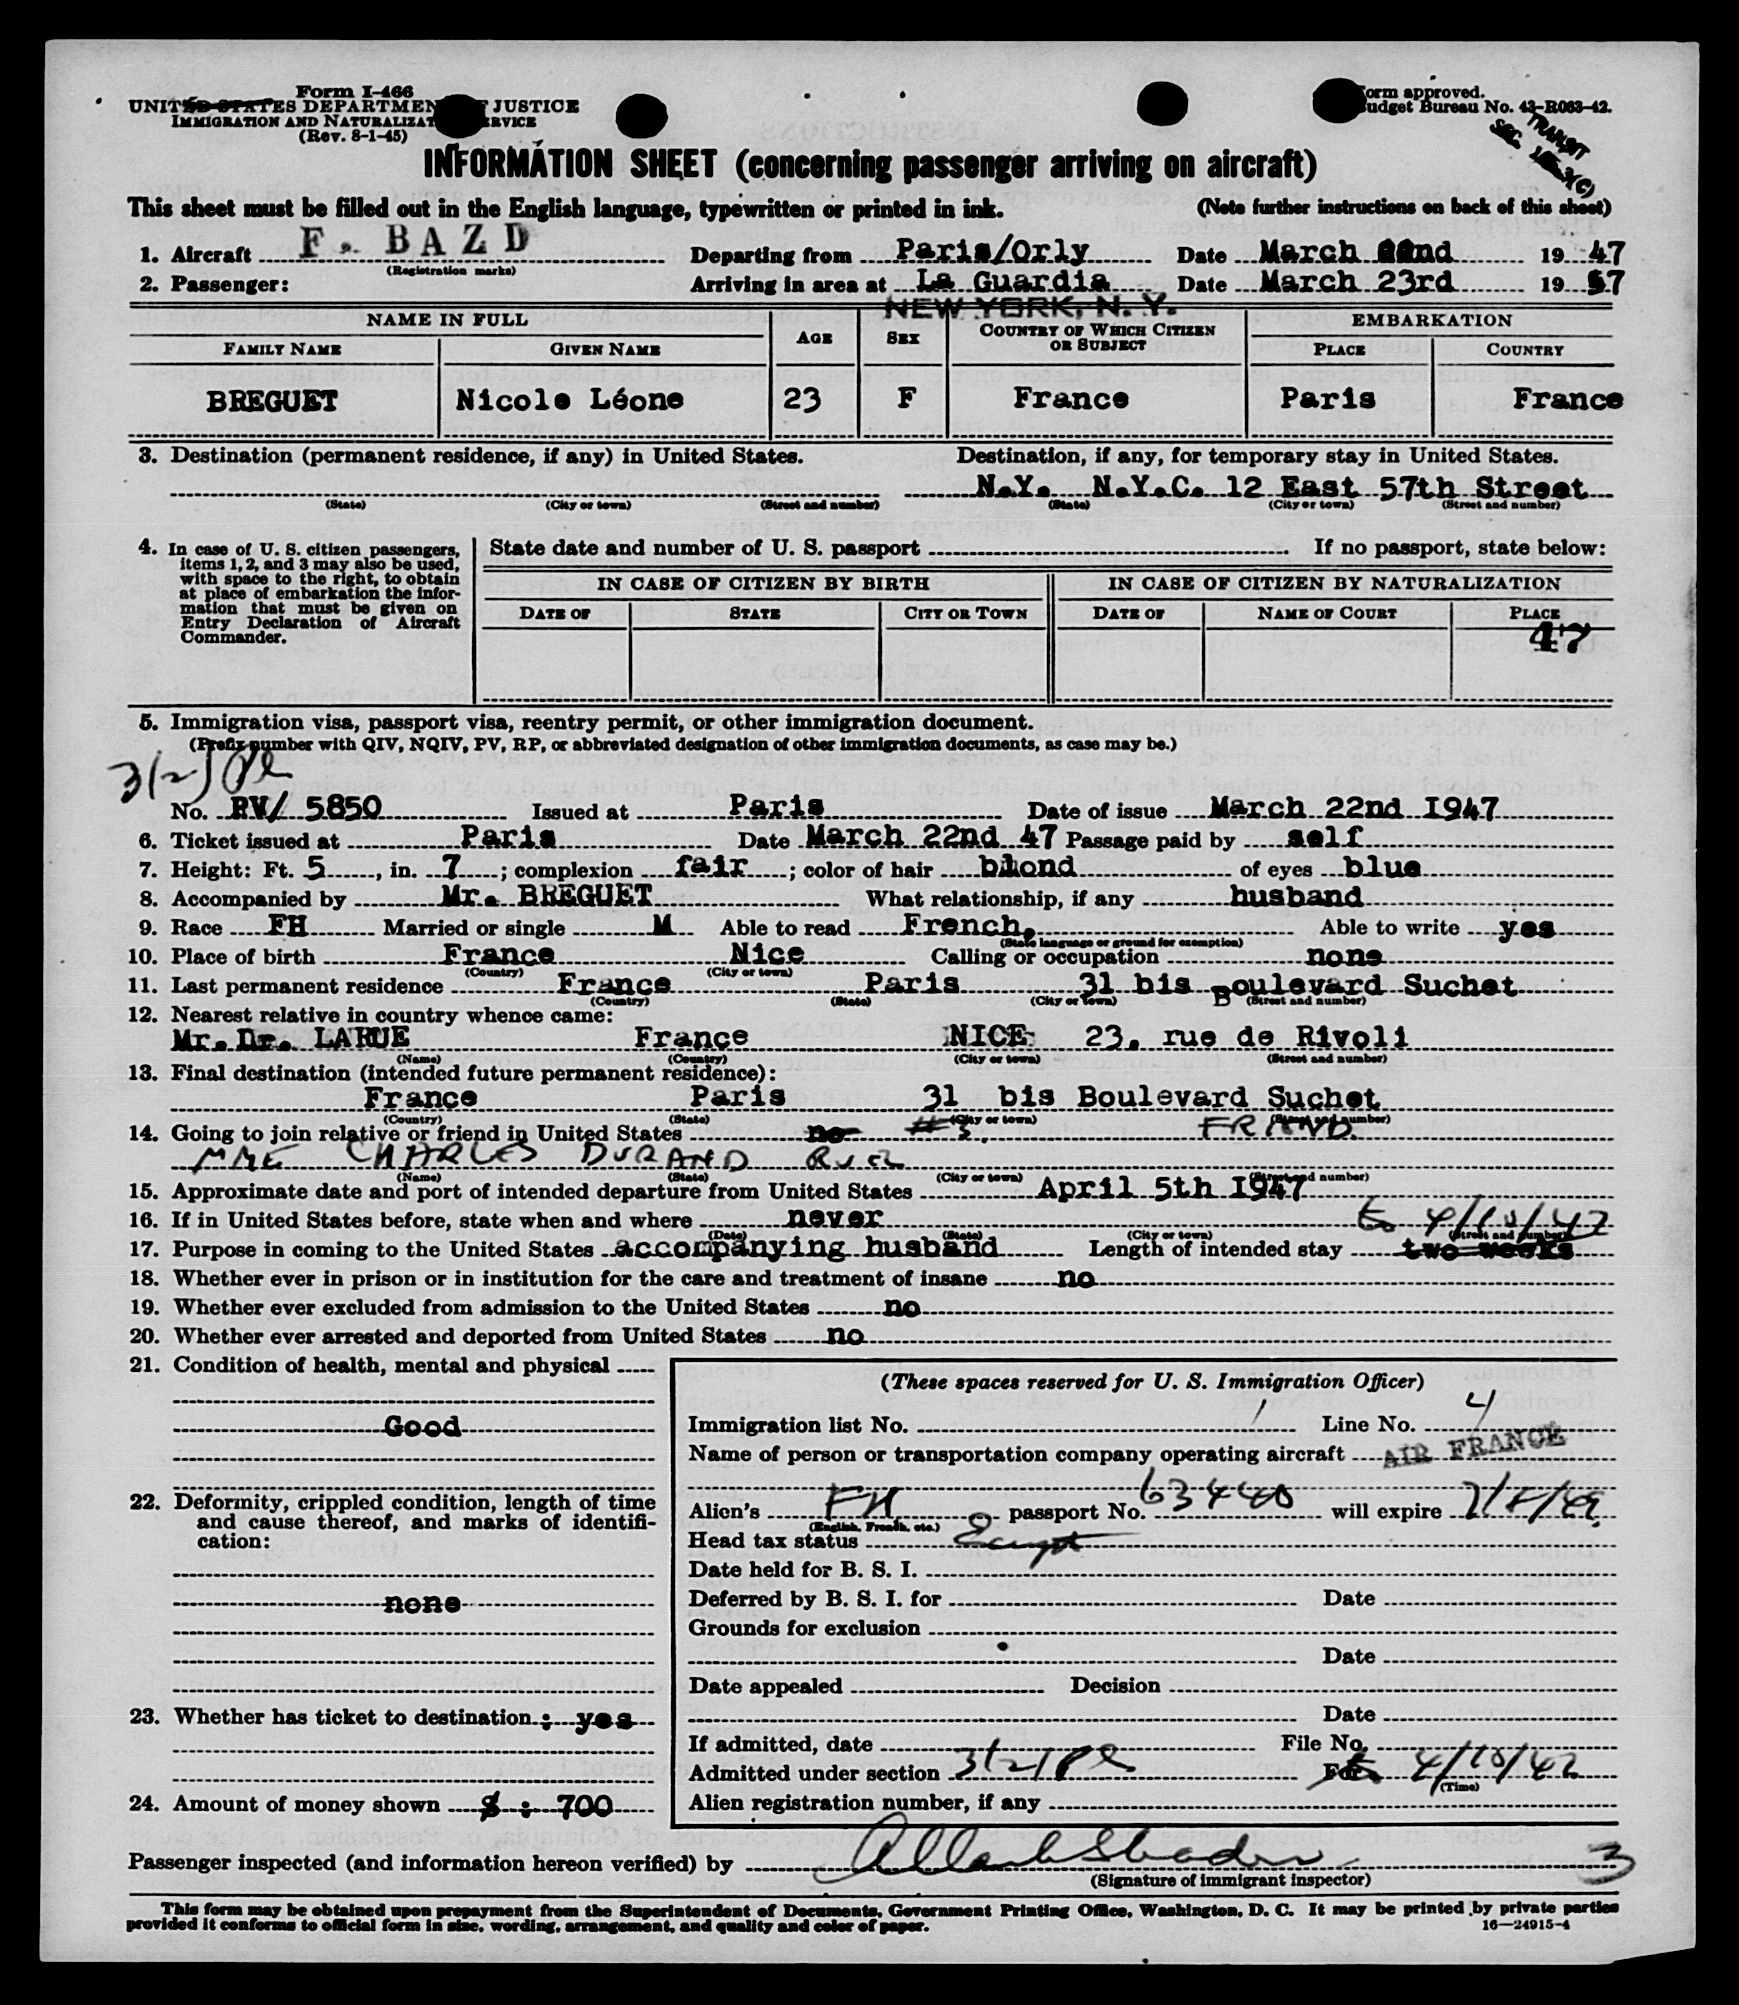 Form I-466
UNITED STATES DEPARTMENT OF JUSTICE
IMMIGRATION AND NATURALIZATION SERVICE
(Rev. 8-1-45)
Form approved.
Budget Bureau No. 43-R063-42.
TRANSIT
SEC.
INFORMATION SHEET (concerning passenger arriving on aircraft)
This sheet must be filled out in the English language, typewritten or printed in ink. (Note further instructions on back of this sheet)
1. Aircraft F. BAZD Departing from Paris/Orly Date March 22nd 19 47
(Registration marks)
2. Passenger: Arriving in area at La Guardia Date March 23rd 19 47
NEW YORK, N. Y.
NAME IN FULL AGE SEX COUNTRY OF WHICH CITIZEN OR SUBJECT EMBARKATION
FAMILY NAME GIVEN NAME PLACE COUNTRY
BREGUET Nicole Léone 23 F France Paris France
3. Destination (permanent residence, if any) in United States. Destination, if any, for temporary stay in United States.
N.Y. N.Y.C. 12 East 57th Street
(State) (City or town) (Street and number) (State) (City or town) (Street and number)
4. In case of U. S. citizen passengers, items 1, 2, and 3 may also be used, with space to the right, to obtain at place of embarkation the information that must be given on Entry Declaration of Aircraft Commander.
State date and number of U. S. passport If no passport, state below:
IN CASE OF CITIZEN BY BIRTH IN CASE OF CITIZEN BY NATURALIZATION
DATE OF STATE CITY OR TOWN DATE OF NAME OF COURT PLACE
47
5. Immigration visa, passport visa, reentry permit, or other immigration document.
(Prefix number with QIV, NQIV, PV, RP, or abbreviated designation of other immigration documents, as case may be.)
No. RV/ 5850 Issued at Paris Date of issue March 22nd I947
6. Ticket issued at Paris Date March 22nd 47 Passage paid by self
7. Height: Ft. 5, in. 7; complexion fair; color of hair blond of eyes blue
8. Accompanied by Mr. BREGUET What relationship, if any husband
9. Race FH Married or single M Able to read French, Able to write yes
(State language or ground for exemption)
10. Place of birth France Nice Calling or occupation none
(Country) (City or town)
11. Last permanent residence France Paris 31 bis Boulevard Suchet
(Country) (State) (City or town) (Street and number)
12. Nearest relative in country whence came:
Mr. Dr. LARUE France NICE 23, rue de Rivoli
(Name) (Country) (City or town) (Street and number)
13. Final destination (intended future permanent residence):
France Paris 31 bis Boulevard Suchet
(Country) (State) (City or town) (Street and number)
14. Going to join relative or friend in United States no #3. FRIEND
MME CHARLES DURAND RUEL
(Name) (State) (City or town) (Street and number)
15. Approximate date and port of intended departure from United States April 5th I947
16. If in United States before, state when and where never to 4/10/47
(Date) (State) (City or town) (Street and number)
17. Purpose in coming to the United States accompanying husband Length of intended stay two weeks
18. Whether ever in prison or in institution for the care and treatment of insane no
19. Whether ever excluded from admission to the United States no
20. Whether ever arrested and deported from United States no
21. Condition of health, mental and physical
Good
22. Deformity, crippled condition, length of time and cause thereof, and marks of identification:
none
23. Whether has ticket to destination : yes
24. Amount of money shown $ : 700
(These spaces reserved for U. S. Immigration Officer)
Immigration list No. 1 Line No. 4
Name of person or transportation company operating aircraft AIR FRANCE
Alien's FH passport No. 63440 will expire
(English, French, etc.)
Head tax status Exempt
Date held for B. S. I.
Deferred by B. S. I. for Date
Grounds for exclusion
Date
Date appealed Decision
Date
If admitted, date File No.
Admitted under section For to 4/10/47
(Time)
Alien registration number, if any
Passenger inspected (and information hereon verified) by 3
(Signature of immigrant inspector)
This form may be obtained upon prepayment from the Superintendent of Documents, Government Printing Office, Washington, D. C. It may be printed by private parties
provided it conforms to official form in size, wording, arrangement, and quality and color of paper. 16—24915-4